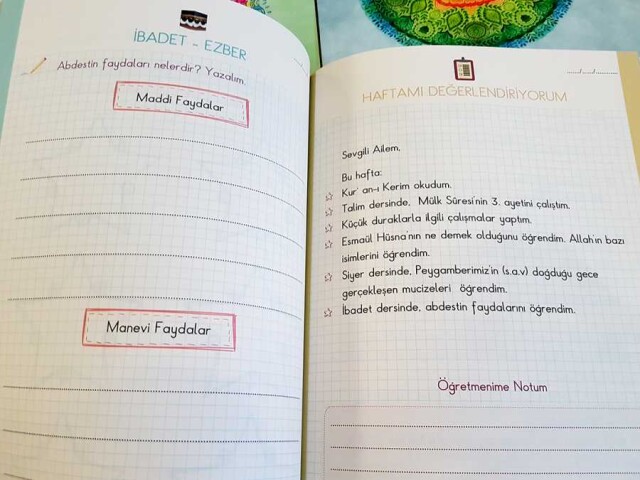 İBADET - EZBER
Abdestin faydaları nelerdir? Yazalım.
Maddi Faydalar
Manevi Faydalar
..../..../....
HAFTAMI DEĞERLENDİRİYORUM
Sevgili Ailem,
Bu hafta:
Kur' an-ı Kerim okudum.
Talim dersinde, Mülk Sûresi'nin 3. ayetini çalıştım.
Küçük duraklarla ilgili çalışmalar yaptım.
Esmaül Hüsna'nın ne demek olduğunu öğrendim. Allah'ın bazı
isimlerini öğrendim.
Siyer dersinde, Peygamberimiz'in (s.a.v) doğduğu gece
gerçekleşen mucizeleri öğrendim.
İbadet dersinde, abdestin faydalarını öğrendim.
Öğretmenime Notum